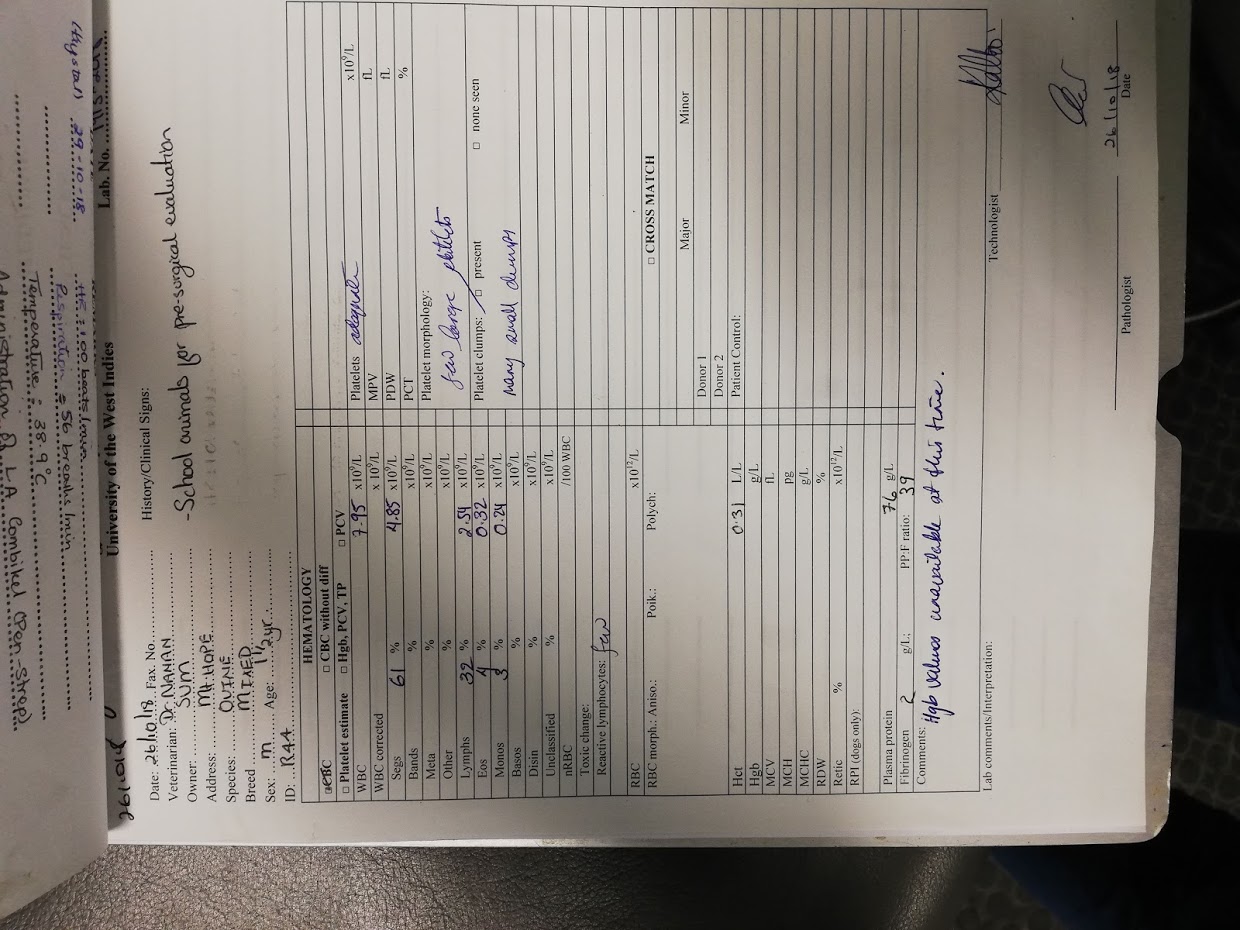 Hysan 29-10-18
HR : 100 beats/min
Respiration : 56 breaths/min
Temperature : 38.9°C
Administration of LA Combikel (Pen-Strep)
26/10/18
University of the West Indies Lab. No.
Date: 26/10/18 Fax. No.
Veterinarian: Dr NANAN
Owner: SVM
Address: Mt. HOPE
Species: OVINE
Breed MIXED
Sex: M Age: 1 1/2 yr.
ID: R44
History/Clinical Signs:
- School animals for pre-surgical evaluation
HEMATOLOGY
□ CBC □ CBC without diff
□ Platelet estimate □ Hgb, PCV, TP □ PCV
WBC 7.95 x10⁹/L
WBC corrected x 10⁹/L
Segs 61 % 4.85 x10⁹/L
Bands % x10⁹/L
Meta % x10⁹/L
Other % x10⁹/L
Lymphs 32 % 2.54 x10⁹/L
Eos 4 % 0.32 x10⁹/L
Monos 3 % 0.24 x10⁹/L
Basos % x10⁹/L
Disin % x10⁹/L
Unclassified % x10⁹/L
nRBC /100 WBC
Toxic change:
Reactive lymphocytes: few
Platelets adequate x10⁹/L
MPV fL
PDW fL
PCT %
Platelet morphology:
few large platelets
Platelet clumps: □ present □ none seen
many small clumps
RBC x10¹²/L
RBC morph.: Aniso.: Poik.: Polych:
Hct 0.31 L/L
Hgb g/L
MCV fL
MCH pg
MCHC g/L
RDW %
Retic % x10¹²/L
RPI (dogs only):
□ CROSS MATCH
Major Minor
Donor 1
Donor 2
Patient Control:
Plasma protein 76 g/L
Fibrinogen 2 g/L; PP:F ratio: 39
Comments: Hgb values unavailable at this time.
Lab comments/Interpretation:
Technologist
Pathologist 26/10/18
Date